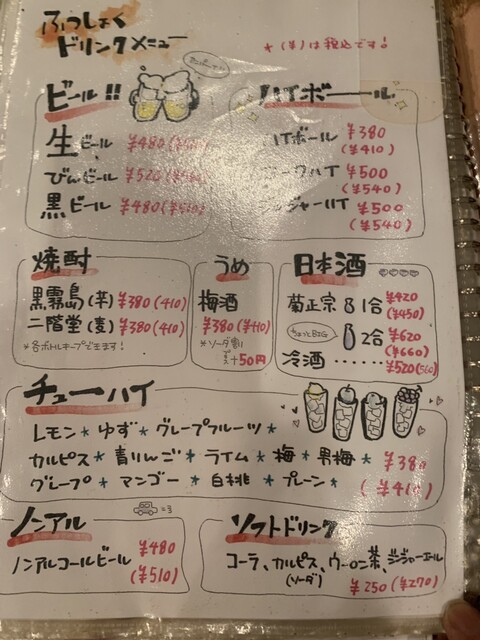 ふっしょく
ドリンクメニュー
*(¥)は税込です!
ビール!!
生ビール ¥480
びんビール ¥520
黒ビール ¥480
ハイボール
ハイボール ¥380
(¥410)
ハイ ¥500
(¥540)
ジンジャーハイ ¥500
(¥540)
焼酎
黒霧島(芋) ¥380(410)
二階堂(麦) ¥380(410)
*各ボトルキープできます!
うめ
梅酒
¥380(¥410)
*ソーダ割
プラス+50円
日本酒
菊正宗 1合 ¥420
(¥450)
ちょっとBIG 2合 ¥620
(¥660)
冷酒 …… ¥520(560)
チューハイ
レモン*ゆず*グレープフルーツ*
カルピス*青りんご*ライム*梅*男梅*
グレープ*マンゴー*白桃*プレーン*
¥380
(¥410)
ノンアル
ノンアルコールビール ¥480
(¥510)
ソフトドリンク
コーラ、カルピス、ウーロン茶、ジンジャーエール
(ソーダ)
¥250(¥270)